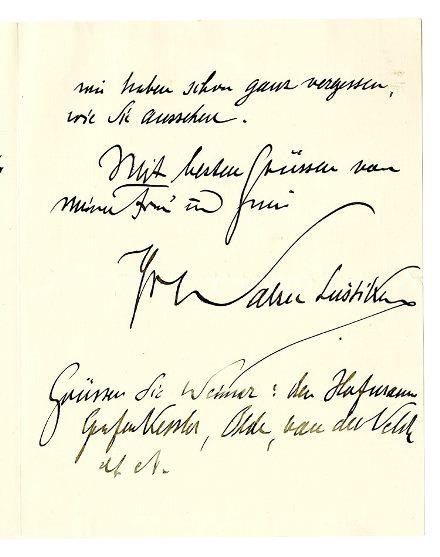 wir haben schon ganz vergessen,
wie Sie aussehen.
Mit besten Grüssen von
meiner Frau und
Ihr Walter Leistikow
Grüssen Sie Weimar: den Hofmann
Grafen Kessler, Olde, van de Velde